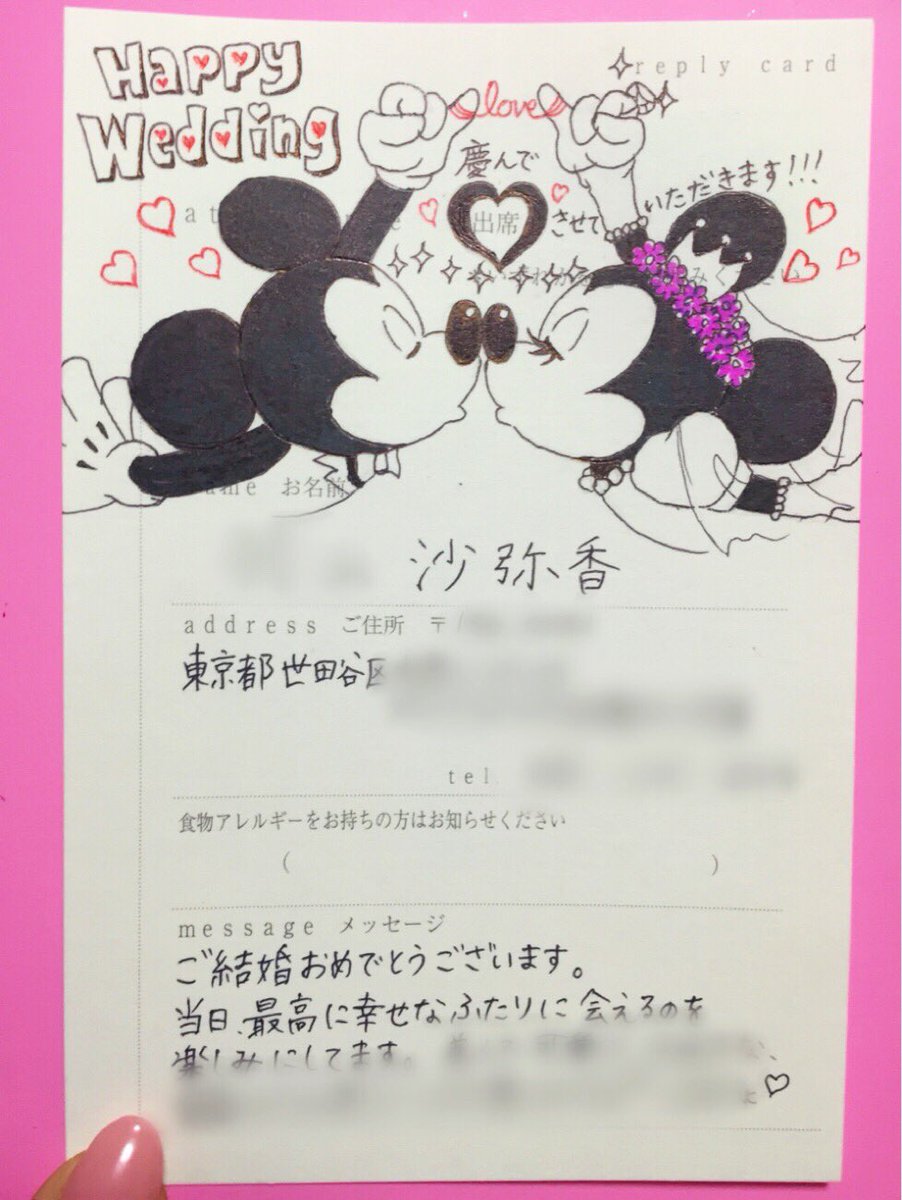 Happy
Wedding
reply card
love
慶んで
出席
させて
いただきます!!!
お名前
沙弥香
address ご住所 〒
東京都世田谷区
tel
食物アレルギーをお持ちの方はお知らせください
( )
message メッセージ
ご結婚おめでとうございます。
当日、最高に幸せなふたりに会えるのを
楽しみにしてます。